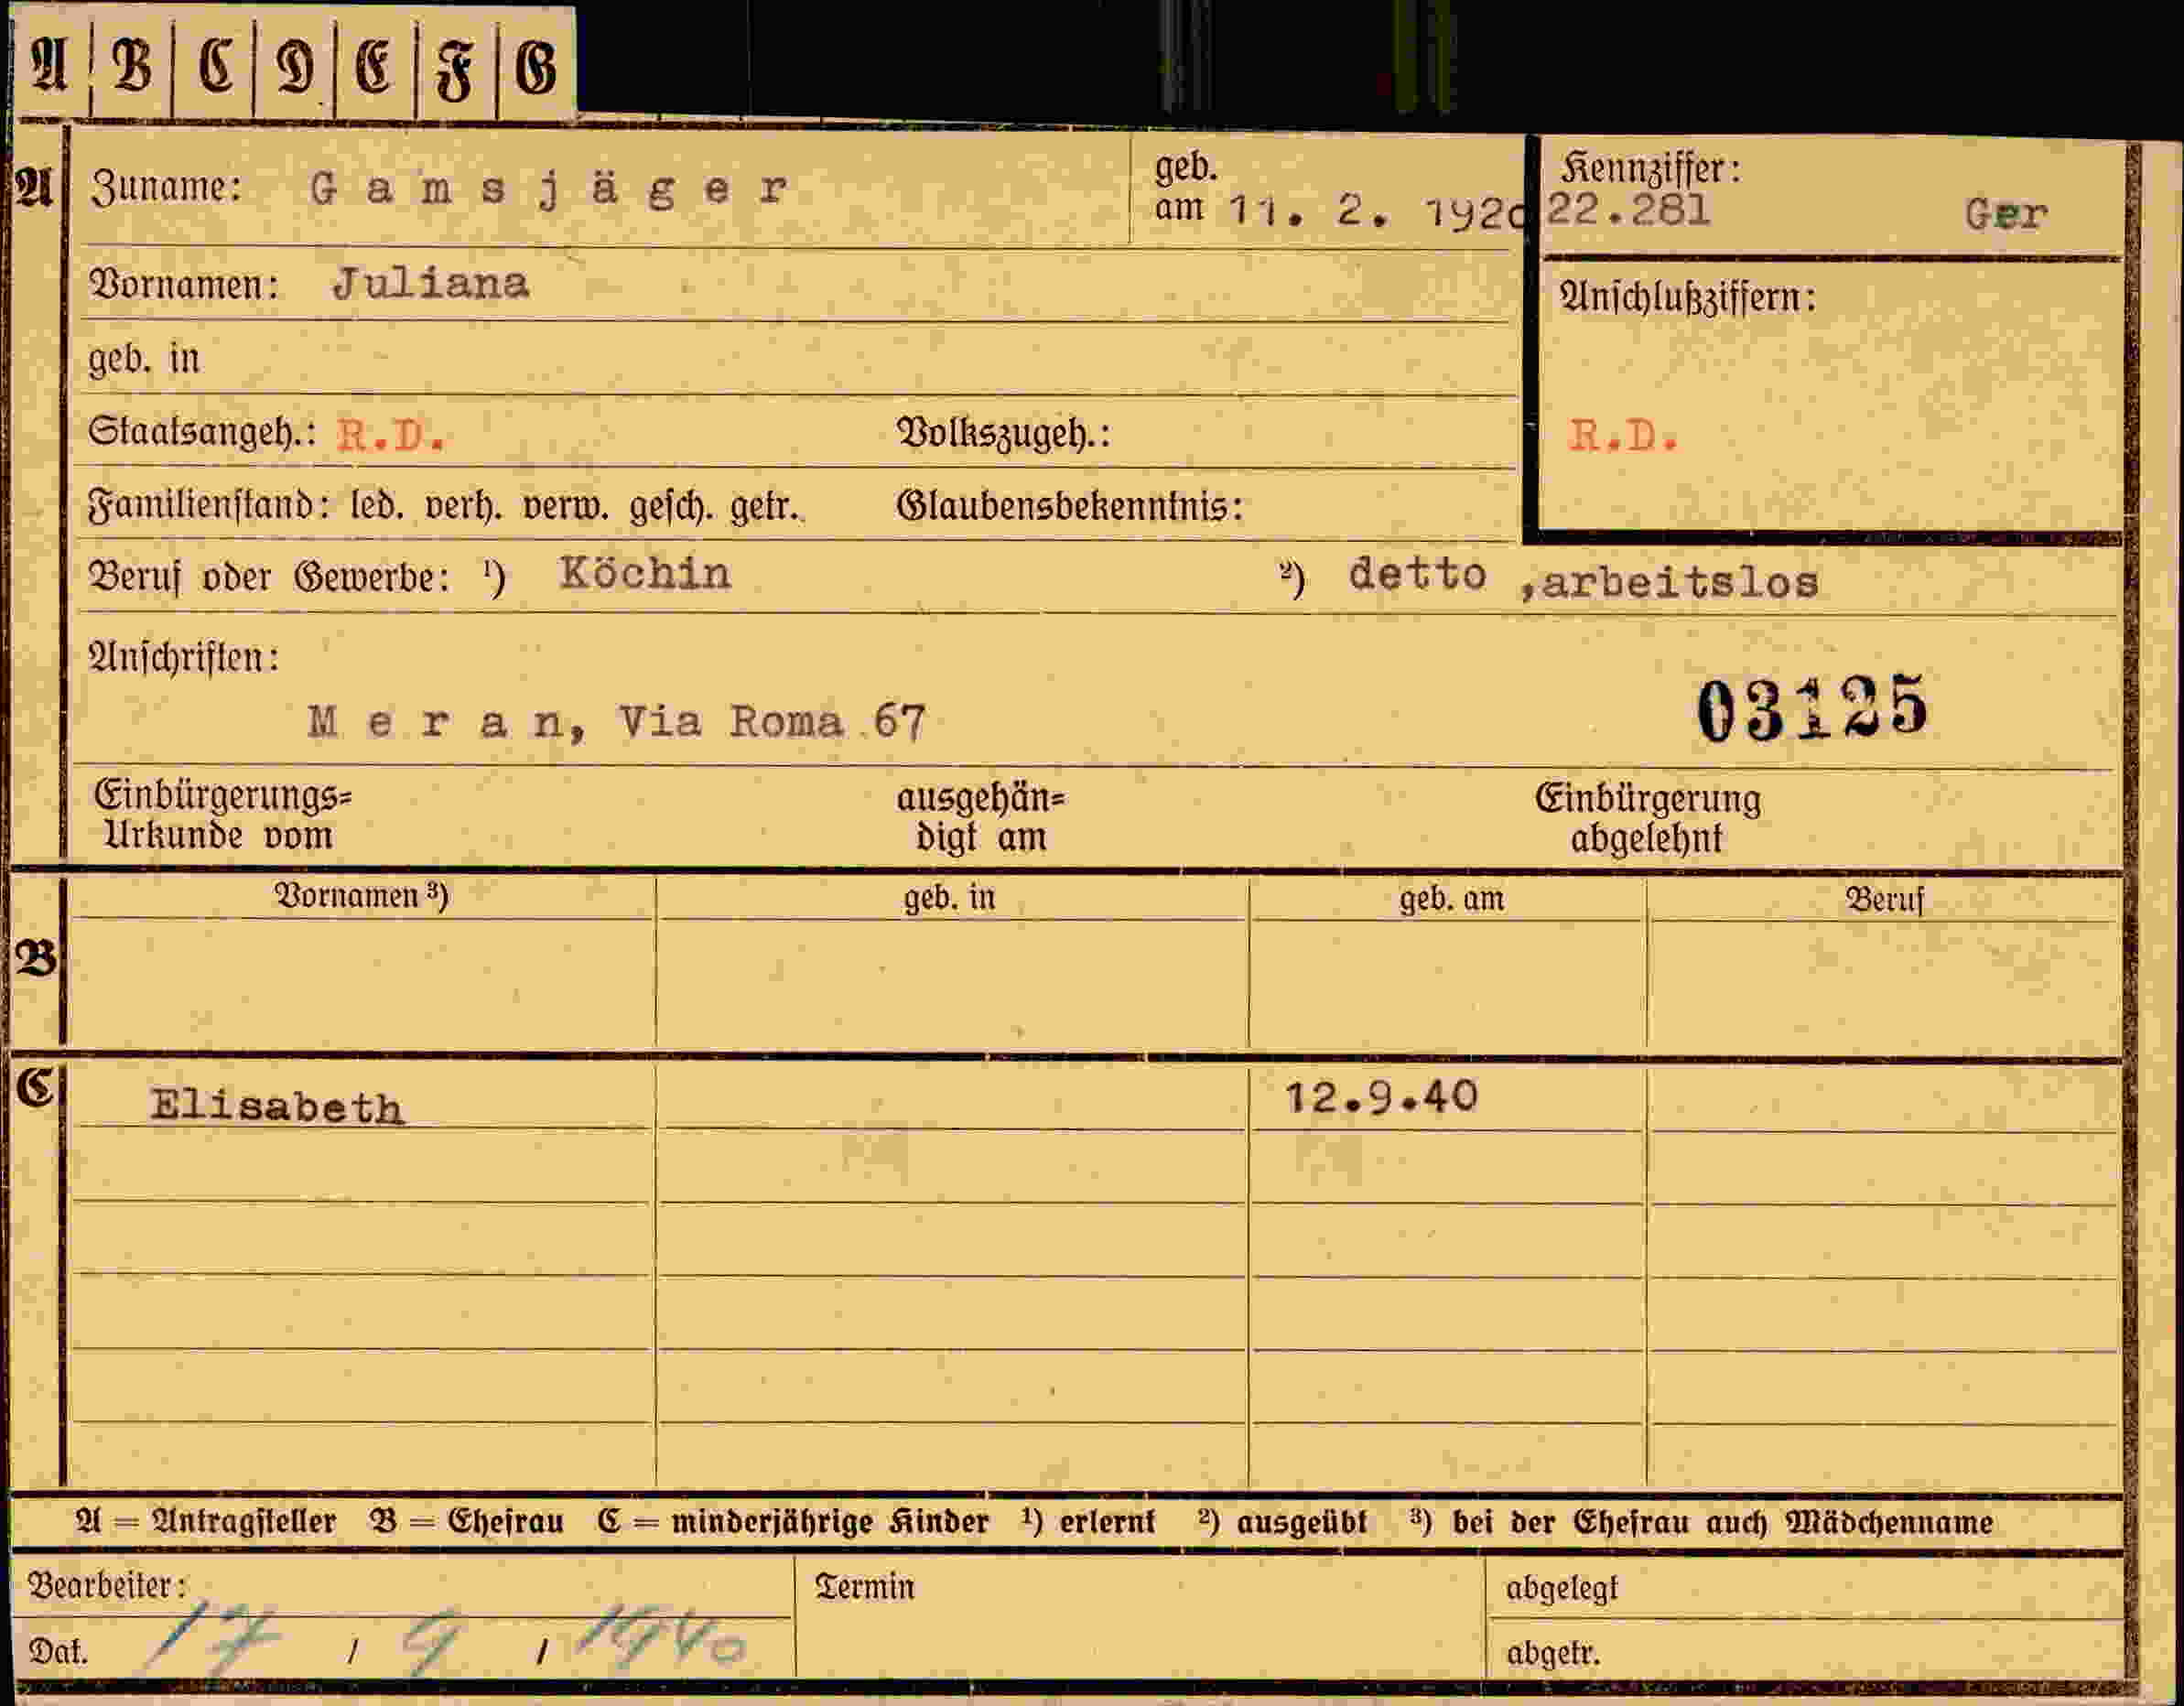 A B C D E F G
A Zuname: Gamsjäger geb. am 11. 2. 1920 Kennziffer: 22.281 Ger
Vornamen: Juliana Anschlußziffern:
geb. in
Staatsangeh.: R.D. Volkszugeh.: R.D.
Familienstand: led. verh. verw. gesch. getr. Glaubensbekenntnis:
Beruf oder Gewerbe: ¹) Köchin ²) detto ,arbeitslos
Anschriften:
Meran, Via Roma 67 03125
Einbürgerungs= ausgehän= Einbürgerung
Urkunde vom digt am abgelehnt
Vornamen ³) geb. in geb. am Beruf
B
C Elisabeth 12.9.40
A = Antragsteller B = Ehefrau C = minderjährige Kinder ¹) erlernt ²) ausgeübt ³) bei der Ehefrau auch Mädchenname
Bearbeiter: Termin abgelegt
Dat. 17 / 9 / 1940 abgetr.